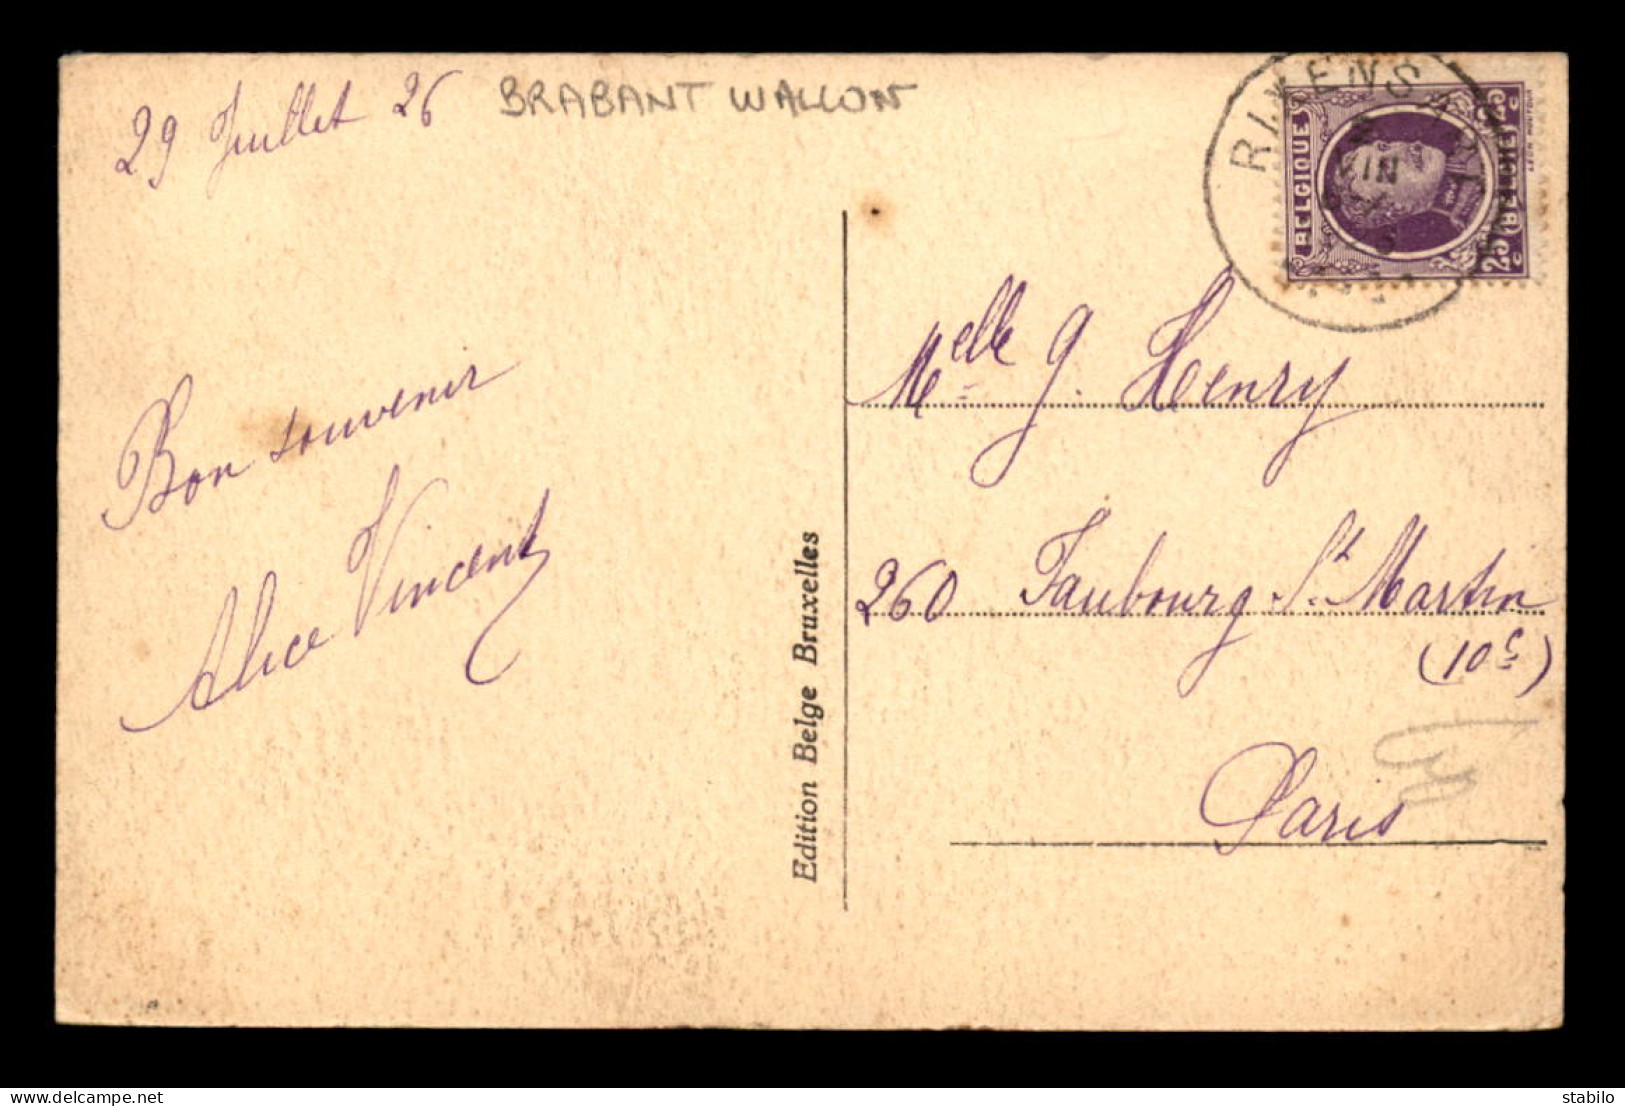 29 Juillet 26
BRABANT WALLON
Bon souvenir
Alice Vincent
Edition Belge Bruxelles
RIXENSART
BELGIQUE
BELGIË
25 c
25 c
Melle G. Henry
260 Faubourg St Martin
(10e)
Paris
delcampe.net
stabilo